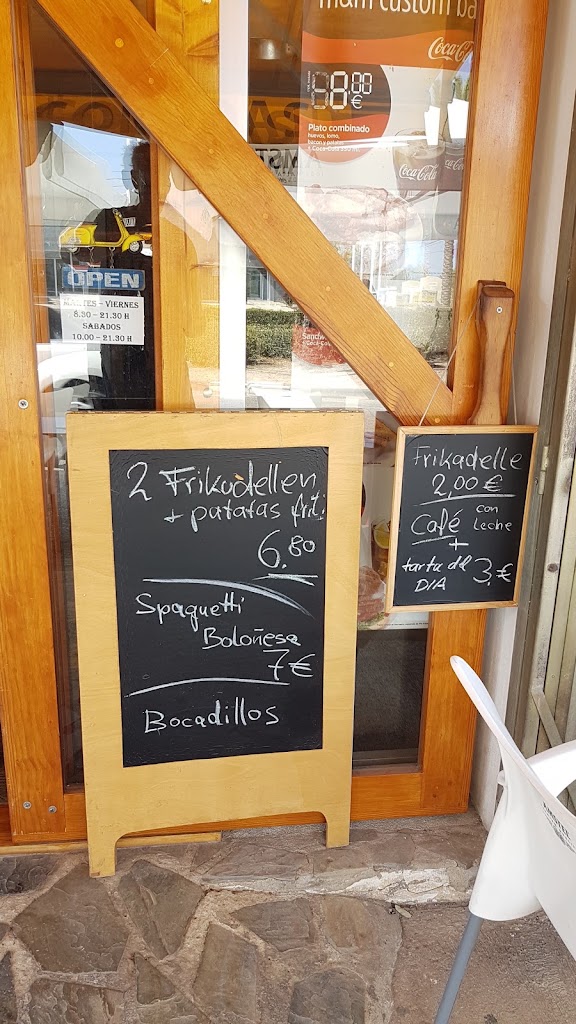 mam custom ba
Coca-Cola
8.00
€
Plato combinado
huevos, lomo,
bacon y patatas
+ Coca-Cola
Coca-Cola
OPEN
MARTES - VIERNES
8.30 - 21.30 H
SABADOS
10.00 - 21.30 H
2 Frikadellen
+ patatas frit.
6.80
Spaguetti
Boloñesa
7€
Bocadillos
Frikadelle
2,00 €
Café con
Leche
+
tarta del
DIA 3,€